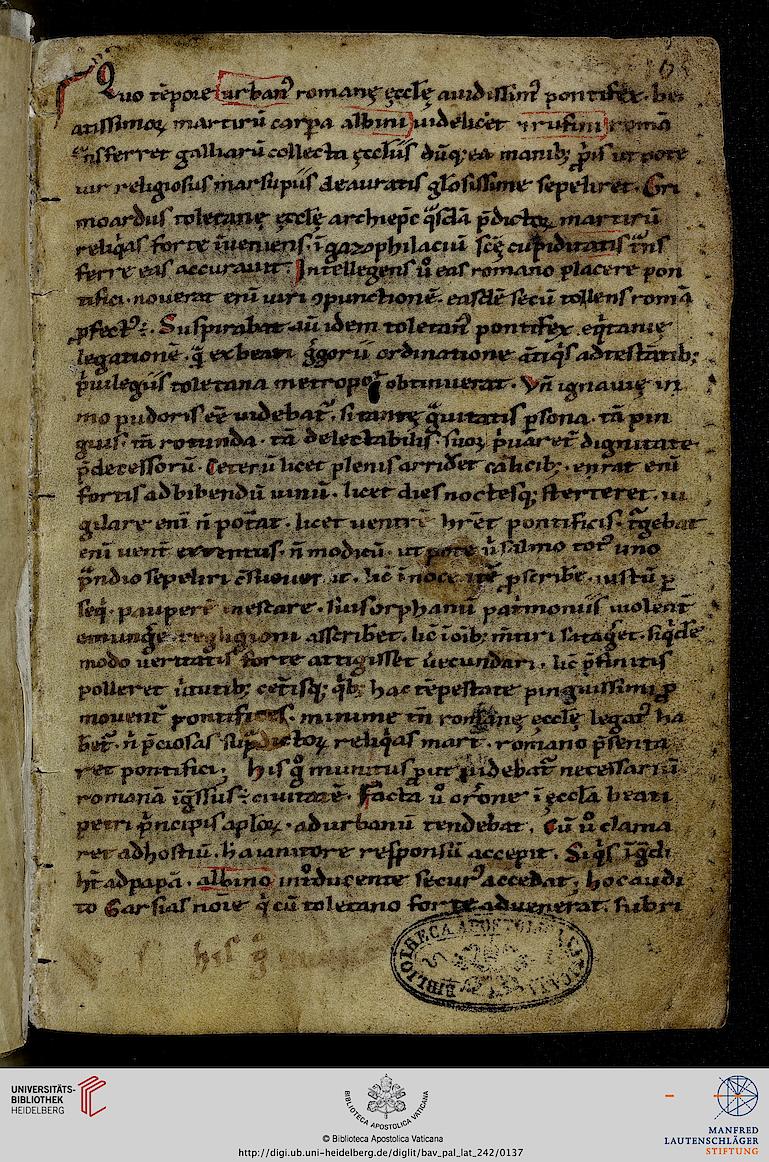 Quo tēpore urban' romanę ęcclę auidissim' pontifex. be
atissimoꝝ martirū carpa albini uidelicet & rufini romā
t̄nsferret galliarū collecta ęccliis dūq; ea manib; ꝓpis utpote
uir religiosus marsupiis deauratis gl̄osissime sepeliret. Gri
moardus toletanę ęcclę archiep̄c q̄sdā p̄dictoꝝ martirū
reliq̄as forte īueniens. ī gazophilaciū sc̄ę cupiditatis t̄ns
ferre eas accurauit. Intellegens ů eas romano placere pon
tifici. nouerat enī uiri ꝯpunctionē. easdē secū tollens romā
ꝓfect' ÷. Suspirabat aū idem toletan' pontifex. eq̄tanię
legationē. q̄ ex beati ḡgorii ordinatione ātiq̄s adtestātib;
p̄uilegiis toletana metropol' obtinuerat. Vn̄ ignauię ni
mo pudoris eē uidebat᷑. si tantę g̃uitatis ꝑsona. tā pin
guis. tā rotunda. tā delectabilis. suoꝝ p̄uaret᷑ dignitate
p̄decessorū. Ceterū licet plenis arrideret calicib;. enī
fortis ad bibendū uinū. licet dies noctesq; sterteret. ui
gilare enī n̄ pot̄at. licet ventrē hr̄et pontificis. t̄gebat
enī uent n̄ modicū. ut pote salmo tot' uno
p̄ndio sepeliri licet īnocentē ꝓscribe. iustū ꝑ
seq. pauperē
emungere religioni asscriberet. lic̄ īoib; m̄tiri satageret. siq̄de
modo ueritatis forte attigisset uerecundari. lic̄ p̄finitis
polleret ūtutib; cet̄isq; q̄b; hac tēpestate pinguissimi ꝓ
mouent᷑ pontifices. minime tn̄ romanę ęcclę legat' ha
bet᷑. n̄ p̄ciosas sup̄dictoꝝ reliq̄as mart. romano p̄senta
ret pontifici. his g̊ munitus ꝓut uidebat᷑ necessariū
romanā īg̃ssus ÷ ciuitatē. Facta ů or̄one ī ęccla beati
petri p̄ncipis apl̄oꝝ. ad urbanū tendebat. Cū ů clama
ret ad hostiū. h̄ a ianitore responsū accepit. Siq̄s īg̃di
h̄t ad papā. albino int̊ducente secur' accedat; hoc audi
to Garsias noīe q̄ cū toletano forte aduenerat. subri
his g̊
BIBLIOTHECA APOSTOLICA VATICANA
UNIVERSITÄTS-
BIBLIOTHEK
HEIDELBERG
BIBLIOTECA APOSTOLICA VATICANA
© Biblioteca Apostolica Vaticana
http://digi.ub.uni-heidelberg.de/diglit/bav_pal_lat_242/0137
MANFRED
LAUTENSCHLÄGER
STIFTUNG